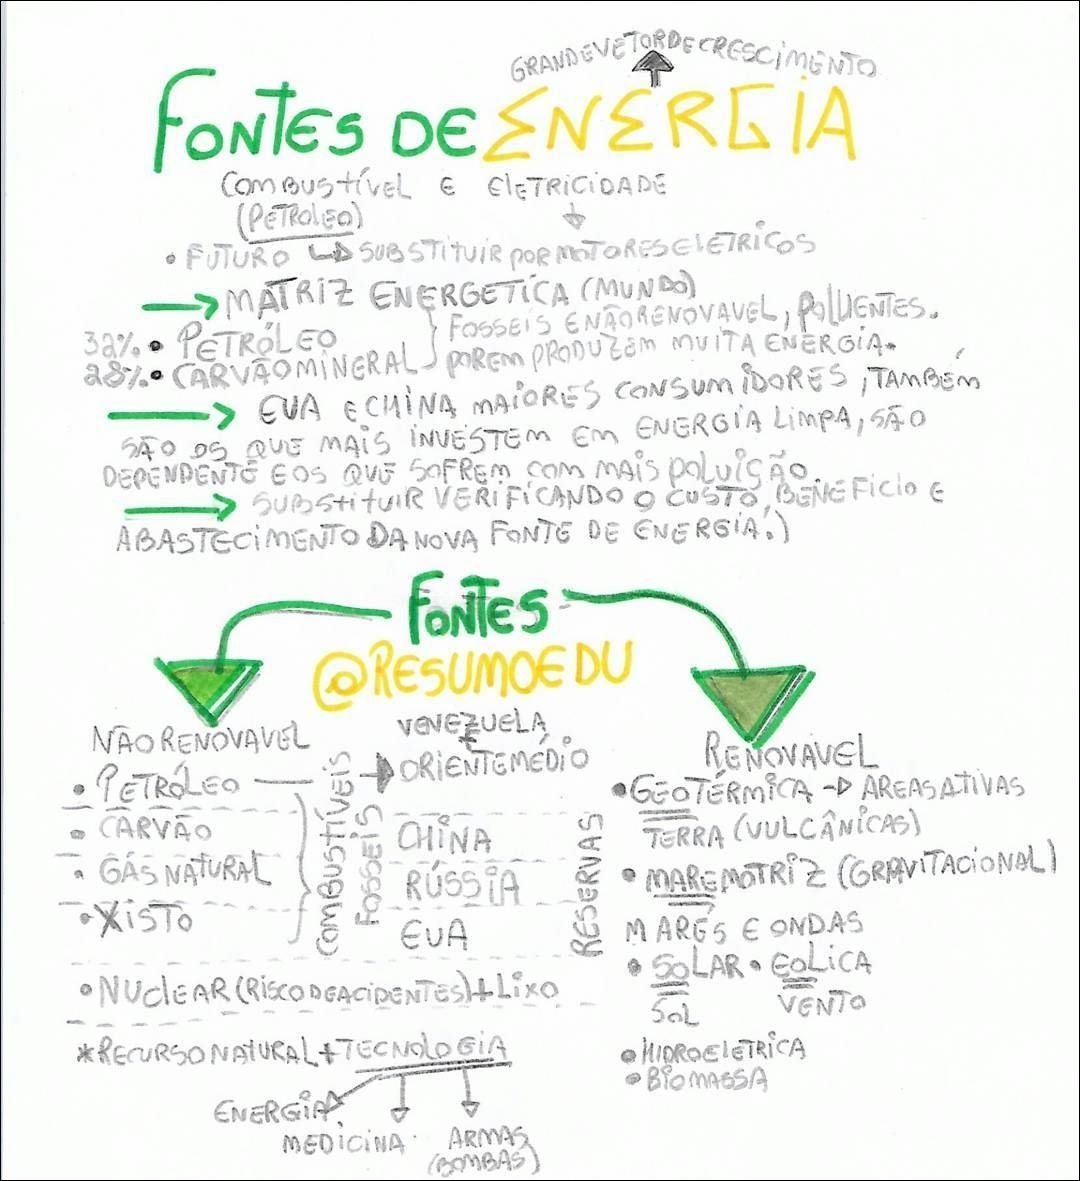 GRANDE VETOR DE CRESCIMENTO
FONTES DE ENERGIA
COMBUSTÍVEL E ELETRICIDADE
(PETROLEO)
• FUTURO ↳ SUBSTITUIR POR MOTORES ELETRICOS
→ MATRIZ ENERGETICA (MUNDO)
32% • PETRÓLEO
28% • CARVÃO MINERAL
FOSSEIS E NÃO RENOVAVEL, POLUENTES.
POREM PRODUZEM MUITA ENERGIA.
→ EUA E CHINA MAIORES CONSUMIDORES, TAMBÉM
SÃO OS QUE MAIS INVESTEM EM ENERGIA LIMPA, SÃO
DEPENDENTE E OS QUE SOFREM COM MAIS POLUIÇÃO.
→ SUBSTITUIR VERIFICANDO O CUSTO, BENEFICIO E
ABASTECIMENTO DA NOVA FONTE DE ENERGIA!)
FONTES
@RESUMOEDU
NÃO RENOVAVEL
• PETRÓLEO
• CARVÃO
• GÁS NATURAL
• XISTO
COMBUSTÍVEIS
FOSSEIS
VENEZUELA,
ORIENTE MÉDIO
CHINA
RÚSSIA
EUA
RESERVAS
• NUCLEAR (RISCO DE ACIDENTES) + LIXO
* RECURSO NATURAL + TECNOLOGIA
ENERGIA
MEDICINA
ARMAS
(BOMBAS)
RENOVAVEL
• GEOTÉRMICA → AREAS ATIVAS
TERRA (VULCÂNICAS)
• MAREMOTRIZ (GRAVITACIONAL)
MARÉS E ONDAS
• SOLAR • EOLICA
SOL VENTO
• HIDROELETRICA
• BIOMASSA